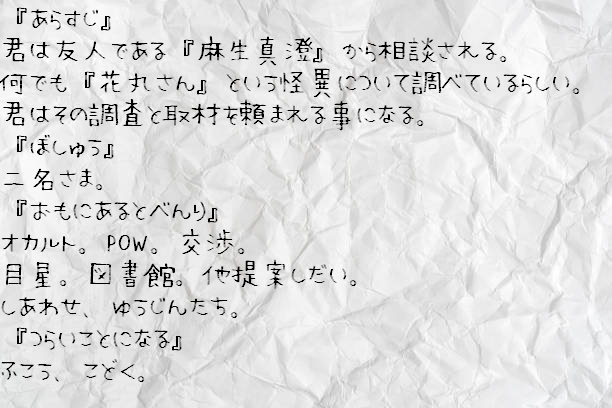 『あらすじ』
君は友人である『麻生真澄』から相談される。
何でも『花丸さん』という怪異について調べているらしい。
君はその調査と取材を頼まれる事になる。
『ぼしゅう』
二名さま。
『おもにあるとべんり』
オカルト。POW。交渉。
目星。図書館。他提案しだい。
しあわせ、ゆうじんたち。
『つらいことになる』
ふこう、こどく。